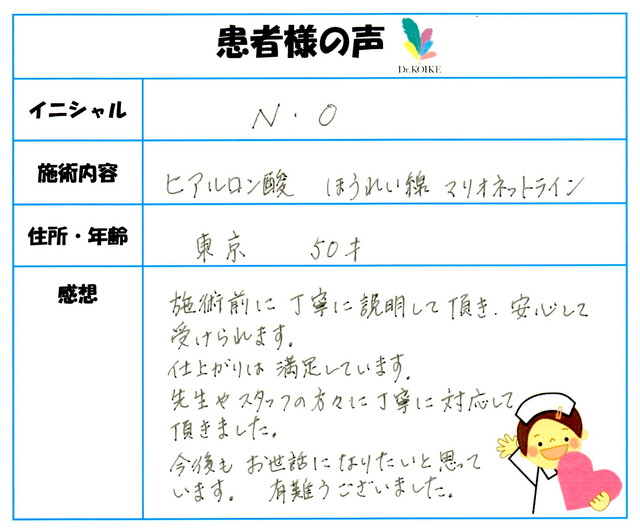 患者様の声
Dr.KOIKE
イニシャル N・O
施術内容 ヒアルロン酸 ほうれい線 マリオネットライン
住所・年齢 東京 50才
感想
施術前に丁寧に説明して頂き、安心して
受けられます。
仕上がりは満足しています。
先生やスタッフの方々に丁寧に対応して
頂きました。
今後もお世話になりたいと思って
います。 有難うございました。